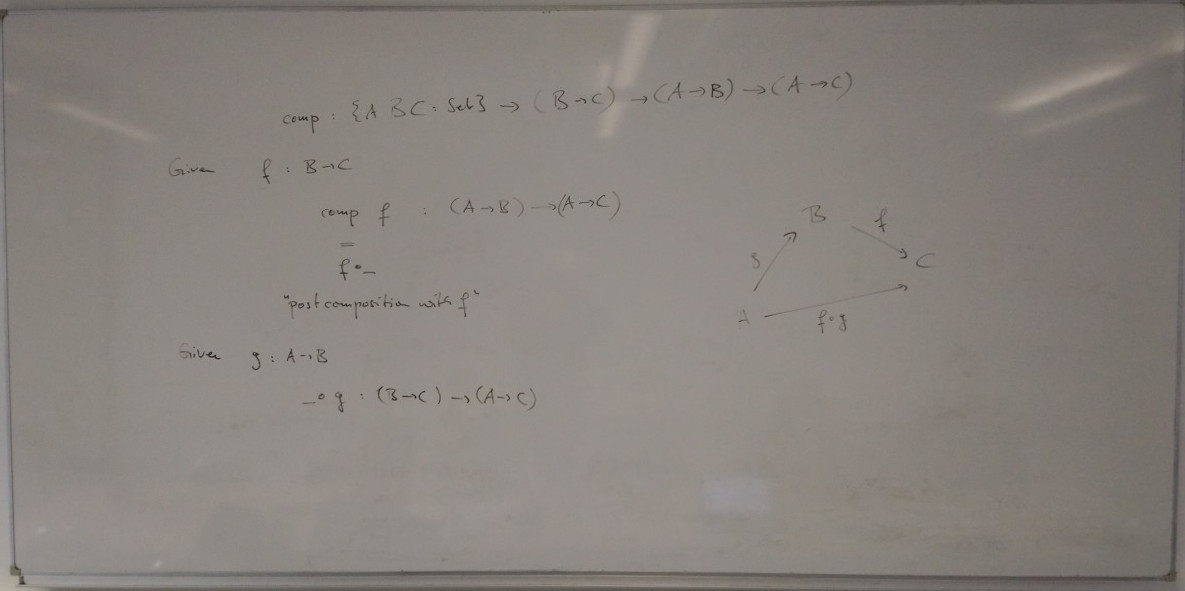 comp : {A B C : Set} → (B → C) → (A → B) → (A → C)
Given f : B → C
comp f : (A → B) → (A → C)
=
f ∘ _
"post composition with f"
Given g : A → B
_ ∘ g : (B → C) → (A → C)
B
f
g
C
A
f ∘ g